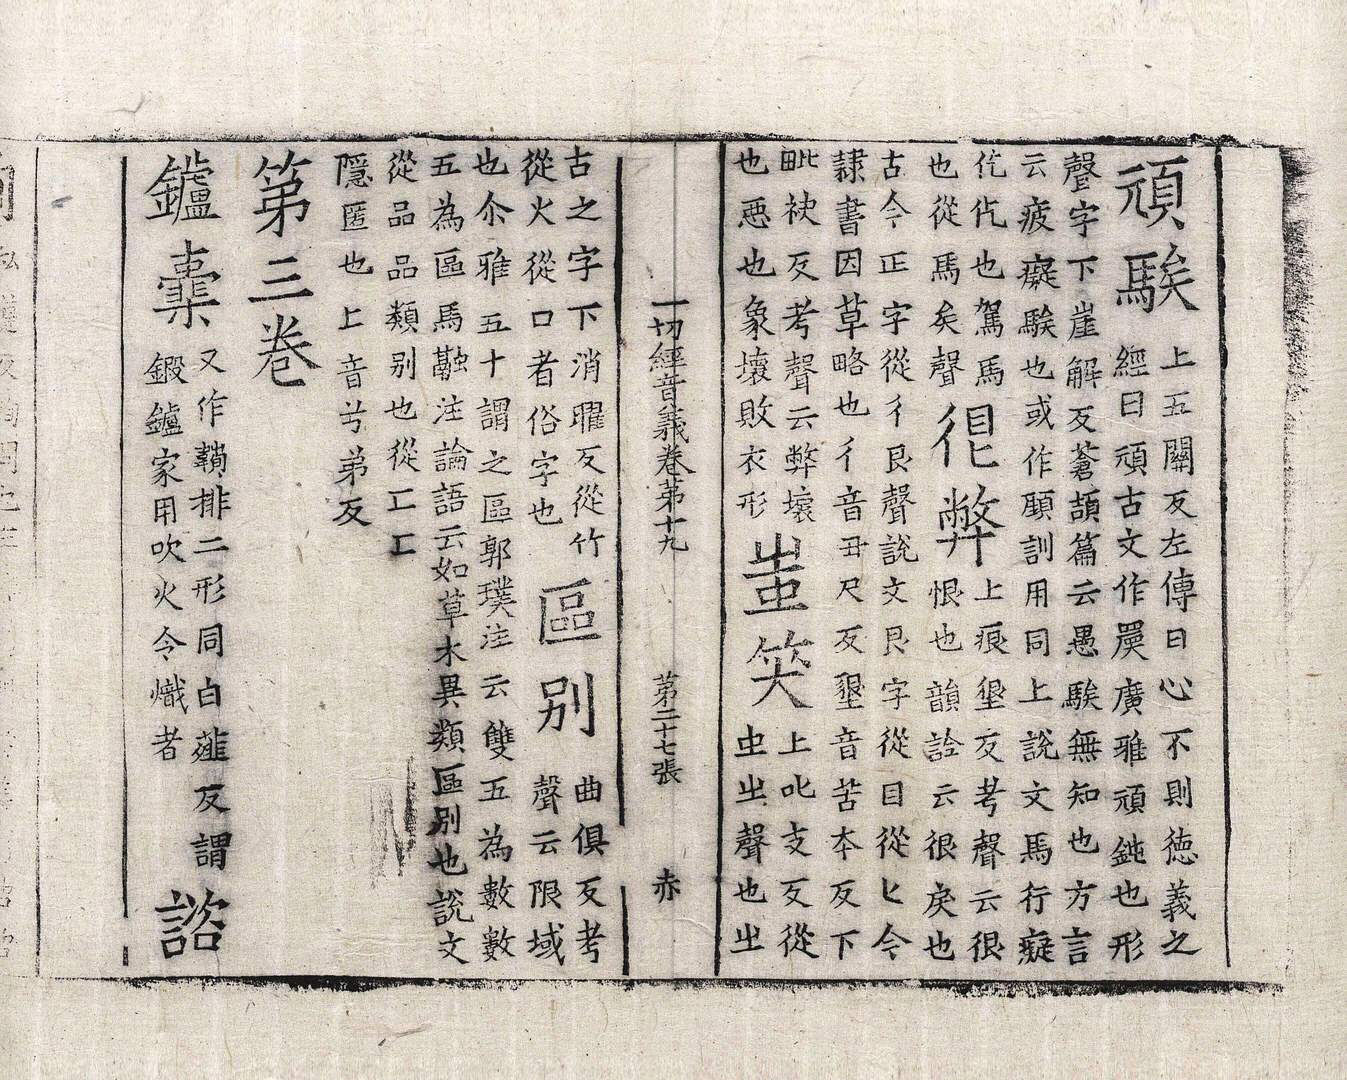 頑騃上五關反左傳曰心不則德義之
經曰頑古文作𡰥廣雅頑鈍也形
聲字下崖解反蒼頡篇云愚騃無知也方言
云疲癡騃也或作顧訓用同上說文馬行癡
仡仡也駕馬
也從馬矣聲佷弊上痕墾反考聲云很
恨也韻詮云很戾也
古今正字從彳艮聲說文艮字從目從匕今
隸書因草略也彳音丑尺反墾音苦本反下
毗袂反考聲云弊壞
也惡也象壞敗衣形蚩笑上叱支反從
虫㞢聲也㞢
一切經音義卷第十九 第二十七張 赤
古之字下消曜反從竹
從犬從口者俗字也區別曲俱反考
聲云限域
也尒雅五十謂之區郭璞注云雙五為數數
五為區馬融注論語云如草木異類區別也說文
從品品類別也從匸匸
隱匿也上音兮弟反
第三卷
鑪橐又作鞴排二形同白薤反謂
鍛鑪家用吹火令熾者諮